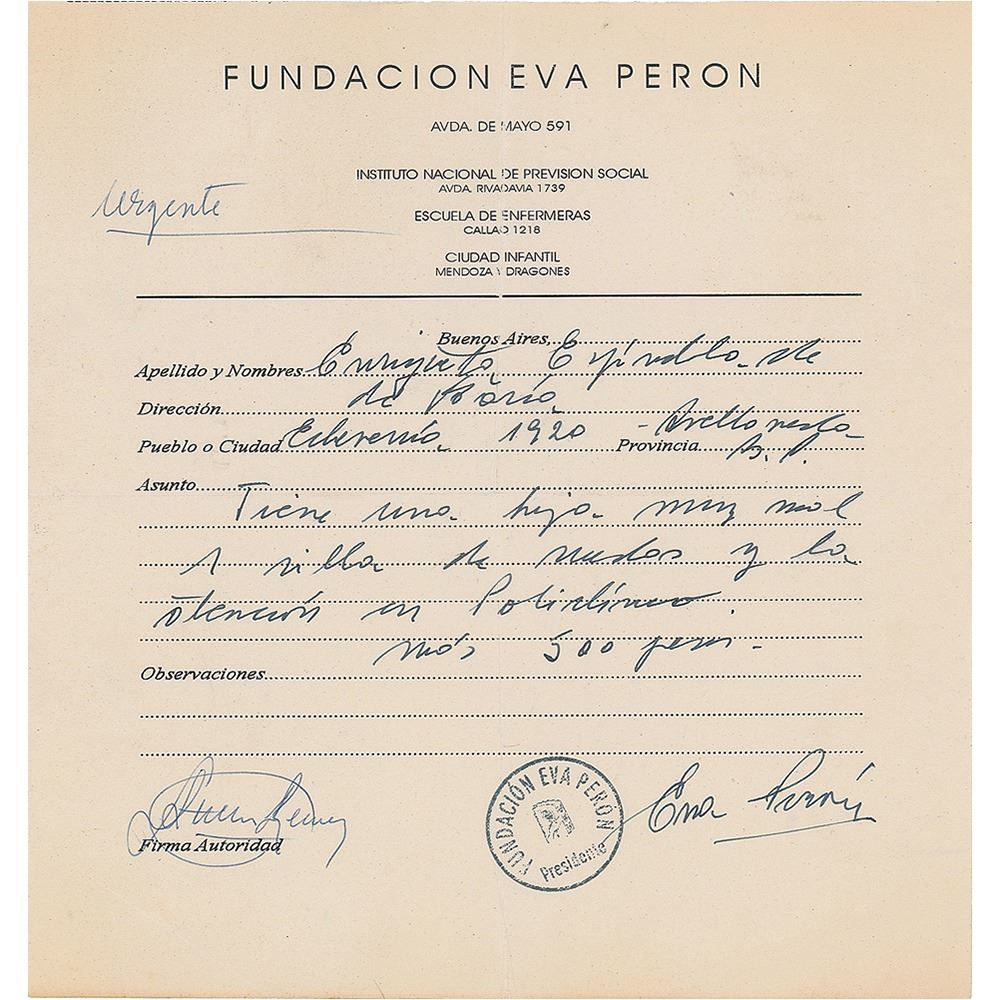 FUNDACION EVA PERON
AVDA. DE MAYO 591
INSTITUTO NACIONAL DE PREVISION SOCIAL
AVDA. RIVADAVIA 1739
Urgente
ESCUELA DE ENFERMERAS
CALLAO 1218
CIUDAD INFANTIL
MENDOZA Y DRAGONES
Buenos Aires,
Apellido y Nombres Enriqueta de
de
Dirección
Pueblo o Ciudad Echeverría 1920 - Avellaneda
Provincia
Asunto
Tiene una hija muy mal
1 silla de ruedas y la
atención en Policlínico.
más 500 pesos.-
Observaciones
Firma Autoridad
FUNDACIÓN EVA PERÓN
Presidente
Eva Perón